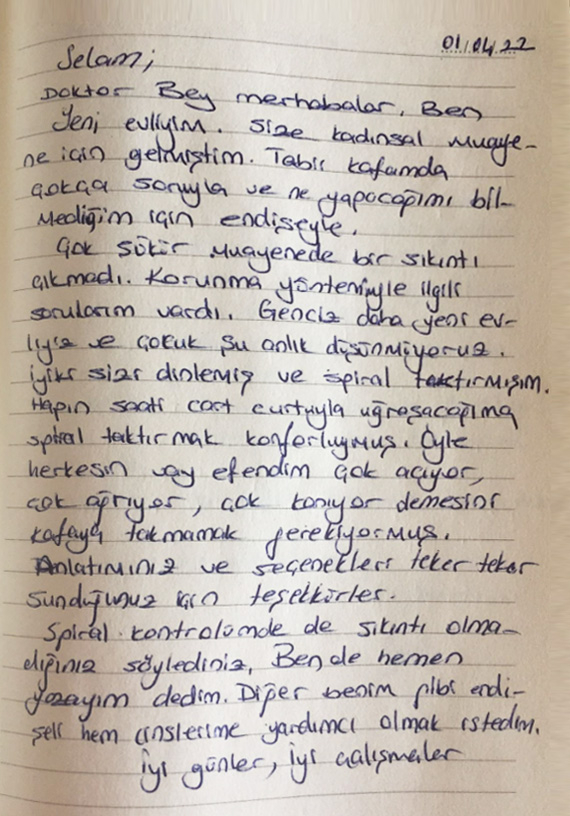 01.04.22
Selam;
Doktor Bey merhabalar. Ben
Yeni evliyim. Size kadınsal muaye-
ne için gelmiştim. Tabii kafamda
çokça soruyla ve ne yapacağımı bil-
mediğim için endişeyle.
Çok şükür muayenede bir sıkıntı
çıkmadı. Korunma yöntemiyle ilgili
sorularım vardı. Genciz daha yeni ev-
liyiz ve çocuk şu anlık düşünmüyoruz.
iyiki sizi dinlemiş ve spiral taktırmışım.
Hapın saati cart curtuyla uğraşacağıma
spiral taktırmak konforluymuş. Öyle
herkesin vay efendim çok acıyor,
çok ağrıyor, çok kanıyor demesini
kafaya takmamak gerekiyormuş.
Anlatımınız ve seçenekleri teker teker
sunduğunuz için teşekkürler.
Spiral kontrolümde de sıkıntı olma-
dığını söylediniz, Bende hemen
yazayım dedim. Diğer benim gibi endi-
şeli hem cinslerime yardımcı olmak istedim.
İyi günler, iyi çalışmalar